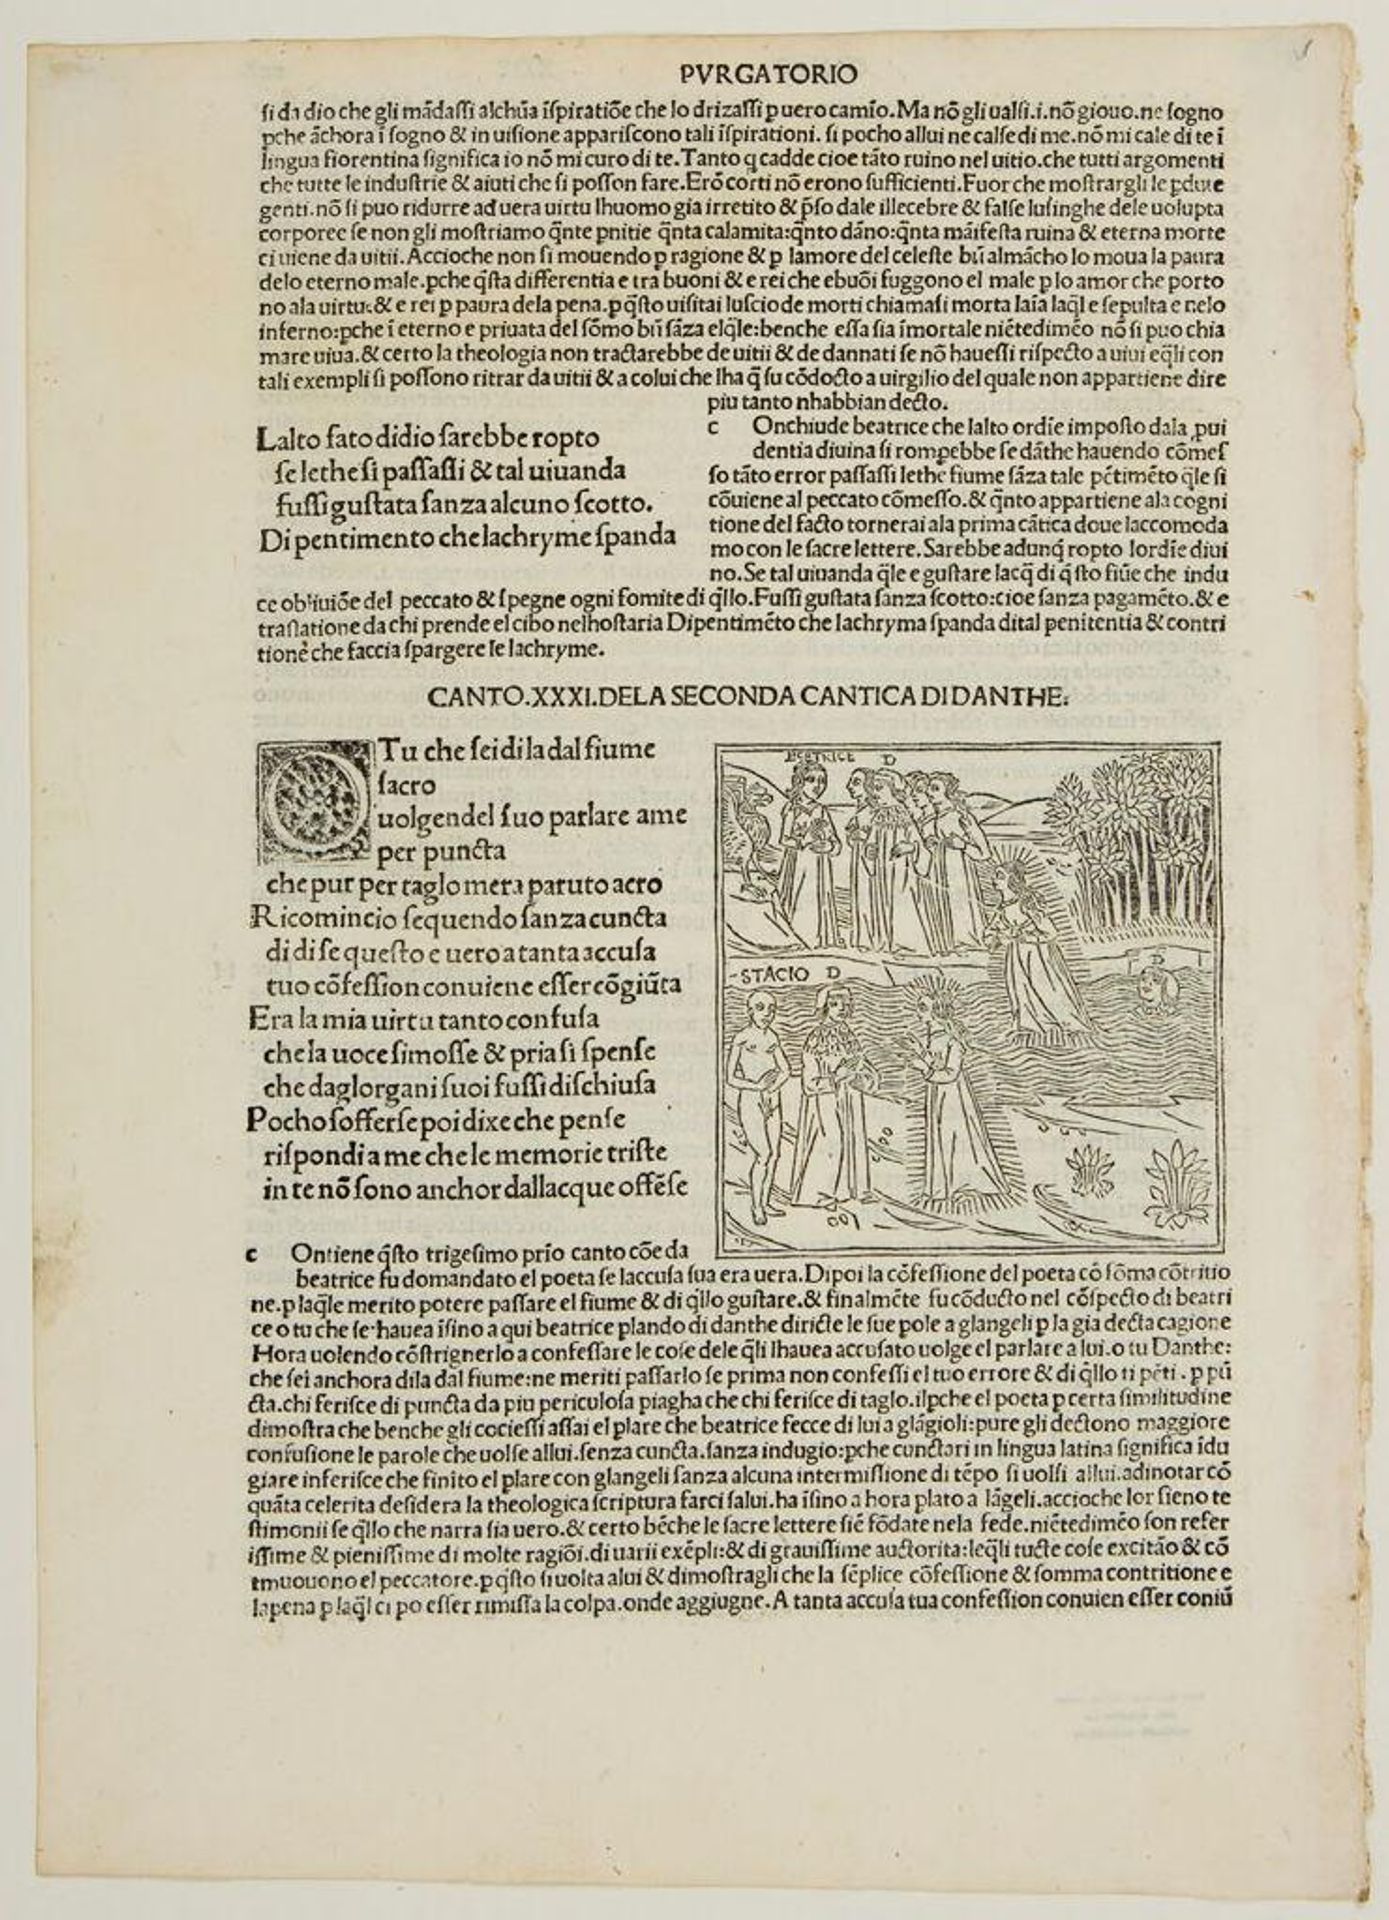 PVRGATORIO
ſi da dio che gli mãdaſſi alchũa ĩſpiratiõe che lo drizaſſi p uero camĩo.Ma nõ gli ualſi.i.nõ giouo.ne ſogno
pche ãchora ĩ ſogno & in uiſione appariſcono tali ĩſpirationi. ſi pocho allui ne calſe di me.nõ mi cale di te ĩ
lingua fiorentina ſignifica io nõ mi curo di te.Tanto q cadde cioe tãto ruino nel uitio.che tutti argomenti
che tutte le induſtrie & aiuti che ſi poſſon fare.Erõ corti nõ erono ſufficienti.Fuor che moſtrargli le pdute
genti.nõ ſi puo ridurre ad uera uirtu lhuomo gia irretito & p̃ſo dale illecebre & falſe luſinghe dele uolupta
corporee ſe non gli moſtriamo q̃nte pnitie q̃nta calamita:q̃nto dãno:q̃nta mãifeſta ruina & eterna morte
ci uiene da uitii.Accioche non ſi mouendo p ragione & p lamore del celeſte bũ almãcho lo moua la paura
delo eterno male.pche q̃ſta differentia e tra buoni & e rei che ebuõi fuggono el male p lo amor che porto
no ala uirtu:& e rei p paura dela pena.p q̃ſto uiſitai luſcio de morti chiamaſi morta laĩa laq̃l e ſepulta e nelo
inferno:pche ĩ eterno e priuata del ſõmo bũ ſãza elq̃le:benche eſſa ſia ĩmortale niẽtedimẽo nõ ſi puo chia
mare uiua.& certo la theologia non tractarebbe de uitii & de dannati ſe nõ haueſſi riſpecto a uiui eq̃li con
tali exempli ſi poſſono ritrar da uitii & a colui che lha q̃ ſu cõdocto a uirgilio del quale non appartiene dire
piu tanto nhabbian decto.
Lalto fato didio ſarebbe ropto
ſe lethe ſi paſſaſſi & tal uiuanda
fuſſi guſtata ſanza alcuno ſcotto.
Di pentimento che lachryme ſpanda
c Onchiude beatrice che lalto ordĩe impoſto dala ꝓui
dentia diuina ſi rompebbe ſe dãthe hauendo cõmeſ
ſo tãto error paſſaſſi lethe fiume ſãza tale pẽtimẽto q̃le ſi
cõuiene al peccato cõmeſſo.& q̃nto appartiene ala cogni
tione del facto tornerai ala prima cãtica doue laccomoda
mo con le ſacre lettere.Sarebbe adunq̃ ropto lordĩe diui
no.Se tal uiuanda q̃le e guſtare lacq̃ di q̃ſto fiũe che indu
ce obliuiõe del peccato & ſpegne ogni fomite di q̃llo.Fuſſi guſtata ſanza ſcotto:cioe ſanza pagamẽto.& e
traſlatione da chi prende el cibo nelhoſtaria Di pentimẽto che lachryma ſpanda di tal penitentia & contri
tione che faccia ſpargere le lachryme.
CANTO.XXXI.DELA SECONDA CANTICA DI DANTHE.
O Tu che ſei di la dal fiume
ſacro
uolgendel ſuo parlare a me
per puncta
che pur per taglo mera paruto acro
Ricomincio ſequendo ſanza cuncta
di di ſe queſto e uero a tanta accuſa
tuo cõfeſſion conuiene eſſer cõgiũta
Era la mia uirtu tanto confuſa
che la uoce ſimoſſe & pria ſi ſpenſe
che daglorgani ſuoi fuſſi diſchiuſa
Pocho ſofferſe poi dixe che penſe
riſpondi a me che le memorie triſte
in te nõ ſono anchor dallacque offẽſe
BEATRICE D
STACIO D
D
c Ontiene q̃ſto trigeſimo prĩo canto cõe da
beatrice fu domandato el poeta ſe laccuſa ſua era uera.Dipoi la cõfeſſione del poeta cõ ſõma cõtritio
ne.p laq̃le merito potere paſſare el fiume & di q̃llo guſtare.& finalmẽte fu cõducto nel cõſpecto di beatri
ce o tu che ſe hauea ĩſino a qui beatrice plando di danthe diricte le ſue pole a glangeli p la gia decta cagione
Hora uolendo cõſtrignerlo a confeſſare le coſe dele q̃li lhauea accuſato uolge el parlare a lui.o tu Danthe:
che ſei anchora dila dal fiume:ne meriti paſſarlo ſe prima non confeſſi el tuo errore & di q̃llo ti pẽti.p pũ
cta.chi feriſce di puncta da piu periculoſa piagha che chi feriſce di taglo.ilpche el poeta p certa ſimilitudine
dimoſtra che benche gli cocieſſi aſſai el plare che beatrice fecce di lui a glãgioli:pure gli dectono maggiore
confuſione le parole che uolſe allui.ſenza cuncta.ſanza indugio:pche cunctari in lingua latina ſignifica ĩdu
giare inferiſce che finito el plare con glangeli ſanza alcuna intermiſſione di tẽpo ſi uolſi allui.adinotar cõ
quãta celerita deſidera la theologica ſcriptura farci ſalui.ha ĩſino a hora plato a lãgeli.accioche lor ſieno te
ſtimonii ſe q̃llo che narra ſia uero.& certo bẽche le ſacre lettere ſiẽ fõdate nela fede.niẽtedimẽo ſon refer
iſſime & pieniſſime di molte ragiõi.di uarii exẽpli:& di grauiſſime auctorita:leq̃li tucte coſe excitão & cõ
tmuouono el peccatore.p q̃ſto ſi uolta alui & dimoſtragli che la ſẽplice cõfeſſione & ſomma contritione e
la pena p laq̃l ci po eſſer rimiſſa la colpa.onde aggiugne.A tanta accuſa tua confeſſion conuien eſſer coniũ